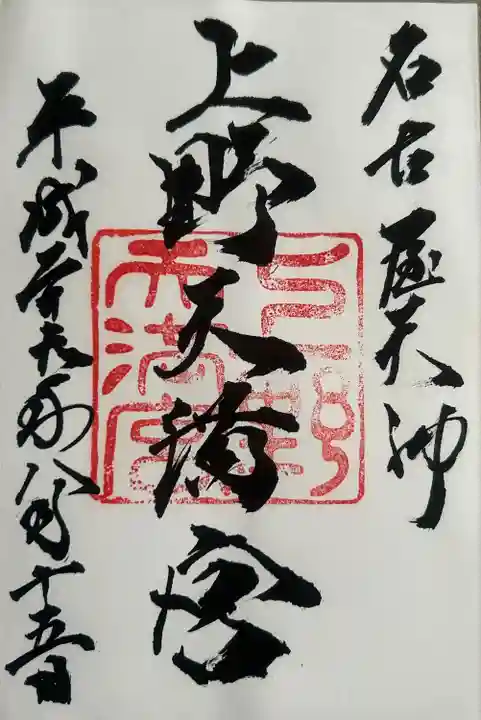 名古屋天神
上野天満宮
平成年八月十五日
上野
天満宮